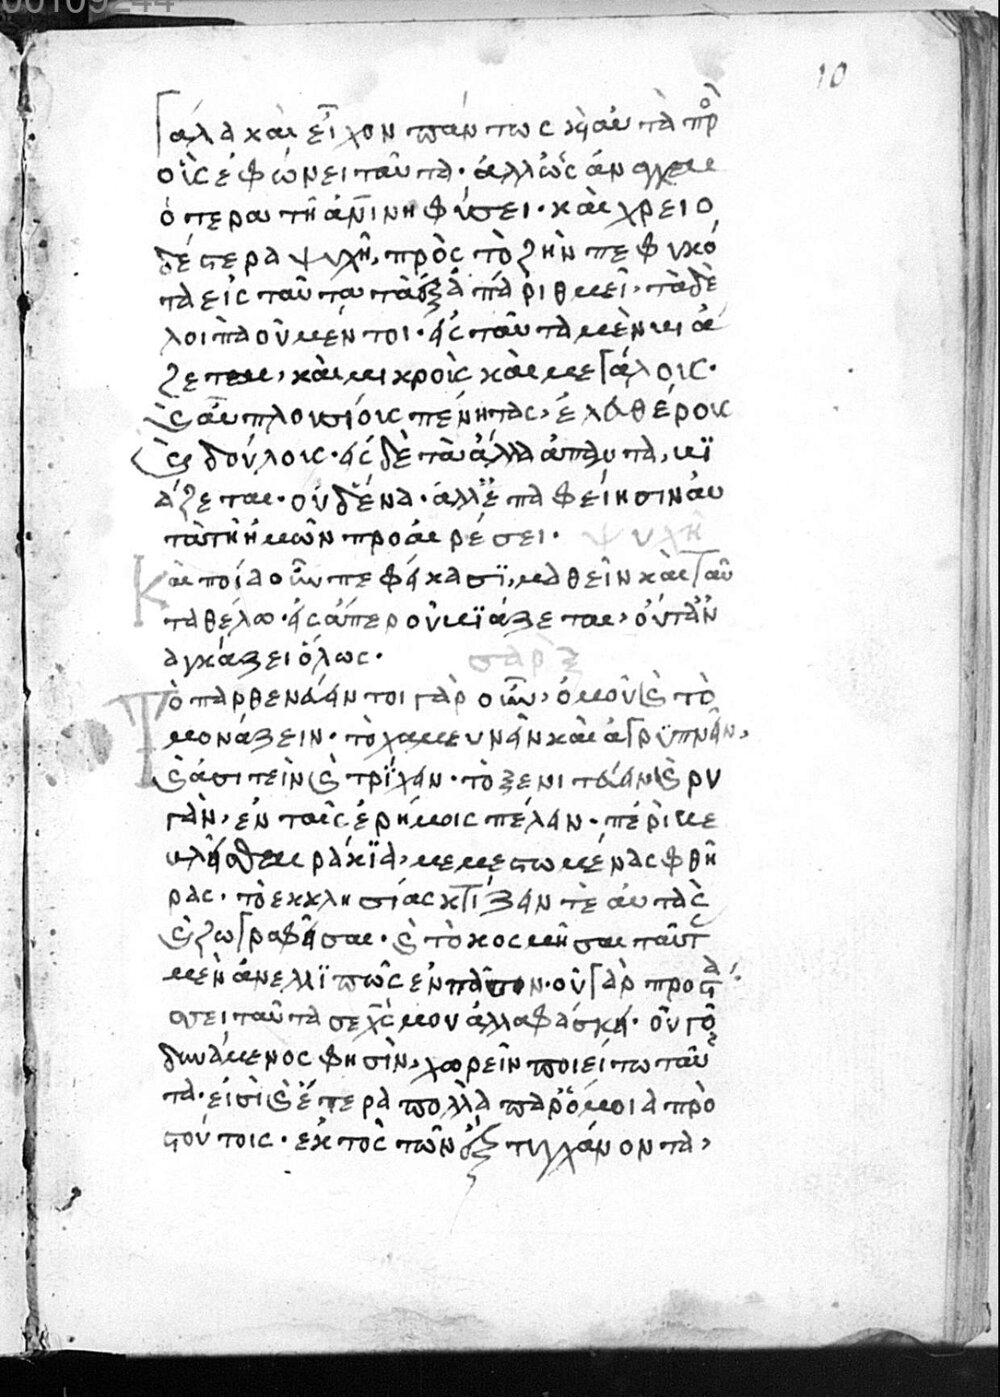 10
γάλα καὶ εἶχον πάντως κ αὐτὰ πρ
οἷς ἐφώνει ταῦτα· ἀλλ' ὡς ἀνάγκαι
ὁπέρα τῆ ἀνίνη φύσει· καὶ χρειο
δέστερα ψυχῆ, πρὸς τὸ ζῆν πεφυκό
τα εἰς ταῦτα τὰ ἓξ ἀπαριθμεῖ, τὰ δὲ
λοιπὰ οὐ μέντοι· εἰς ταῦτα μὲν βιά
ζεται, καὶ μικροῖς καὶ μεγάλοις·
κ αὖ πλουσίοις πένητας, ἐλευθέροις
κ δούλοις· εἰς δὲ τὰ ἄλλα ἅπαντα, βϊ
άζεται· οὐδένα· ἀλλ' ἔπαφείησιν αὐ
τὰ τῆ ἡμῶν προαιρέσει· ψυχὴ
Καὶ ποία οὖν πεφύκασϊ, μαθεῖν καὶ ταῦ
τα θέλω· εἰς ἅπερ οὐ βϊάζεται, οὔτ' ἂν
αγκάζει ὅλως· σάρξ
Τὸ παρθενεύειν τοι γὰρ οὖν, ὁμοῦ κ τὸ
μονάζειν· τὸ χαμευνεῖν καὶ ἀγρϋπνεῖν,
κ ἀσιτεῖν κ τρΐχειν· τὸ ξενιτεύειν κ ρυ
γᾶν, ἐν ταῖς ἐρήμοις πέλειν· περιβε
βλῆσθαι ράκϊα, μεμεστωμένας φθεῖ
ρας· τὸ ἐκκλησίας κτίζειν τὲ αὐτὰς
κ ζωγραφῆσαι· κ τὸ κοσμῆσαι ταῦτ
μὲν ἀνελλϊπῶς ἐν πᾶσιν· οὐ γὰρ προστά
σει ταῦτα σε χς μου ἀλλα φάσκει· ὁ γὰρ
δυνάμενος φησὶν, χωρεῖν ποιείτω ταῦ
τα· εἰσὶ κ ἕτερα πολλὰ παρόμοια πρὸ
τούτοις· ἐκτὸς τῶν ἓξ τυγχάνοντα,